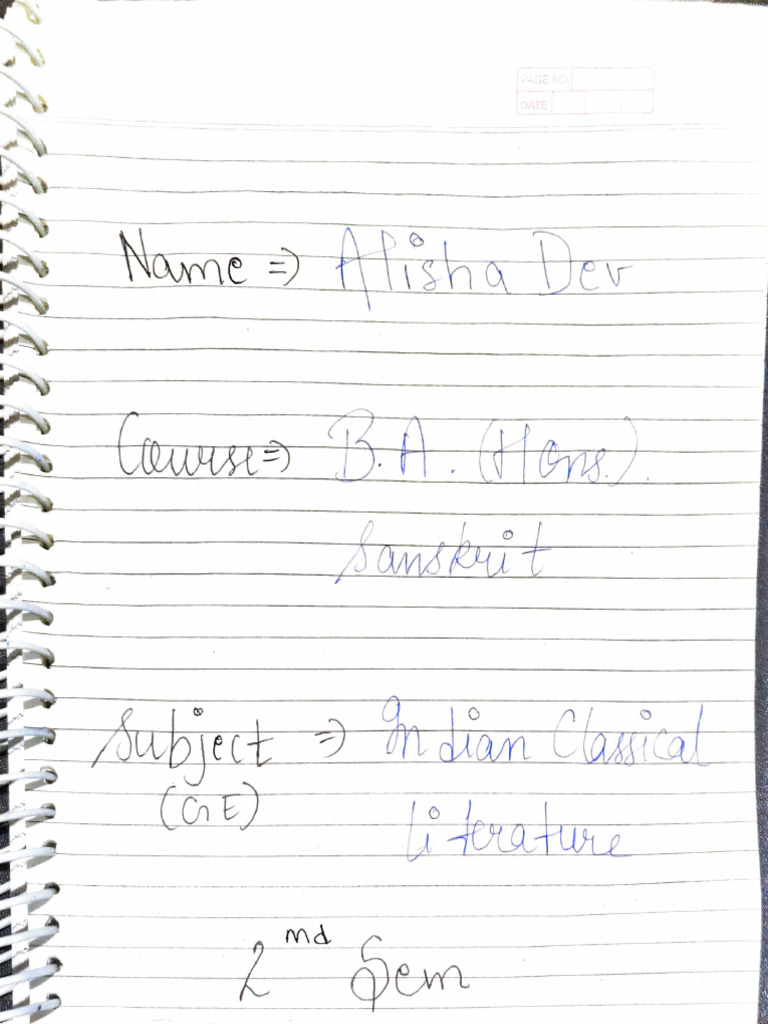 PAGE NO.
DATE
Name => Alisha Dev
Course => B.A. (Hons.)
Sanskrit
Subject => Indian Classical
(GE)
Literature
2nd Sem